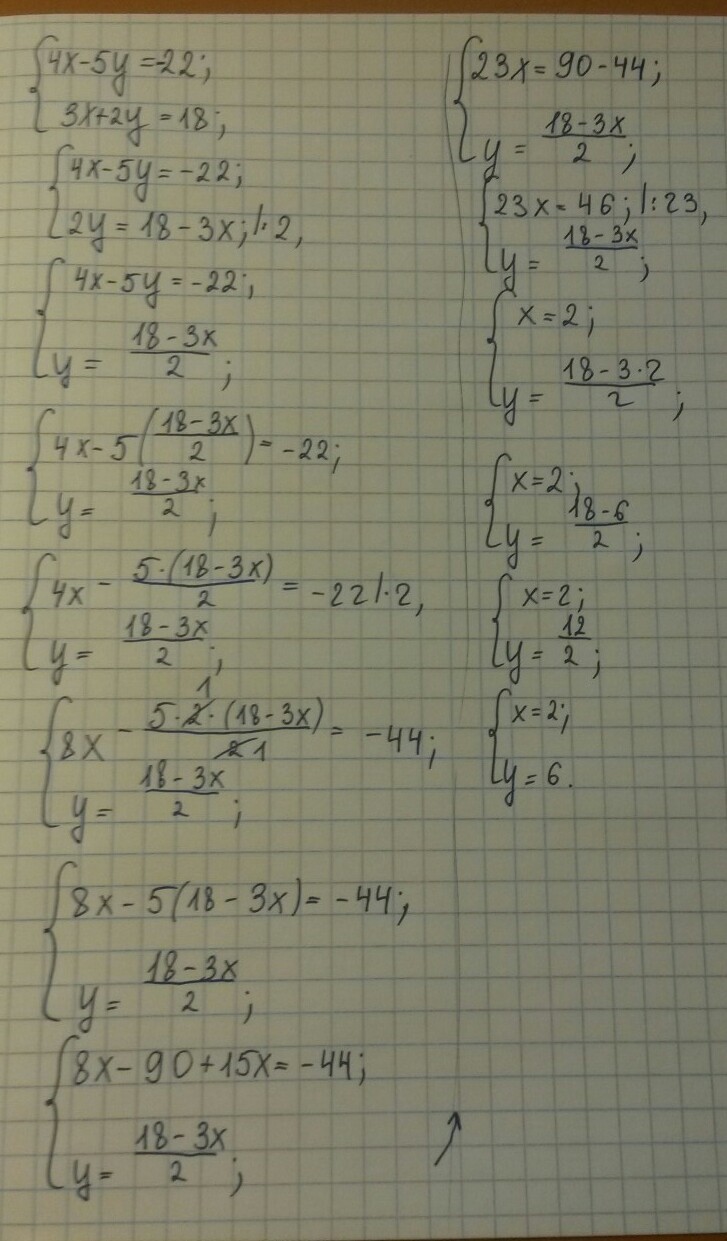 {4x-5y=-22;
3x+2y=18;
{4x-5y=-22;
2y=18-3x; |:2,
{4x-5y=-22;
y= (18-3x)/2;
{4x-5((18-3x)/2)=-22;
y= (18-3x)/2;
{4x - (5·(18-3x))/2 = -22 |·2,
y= (18-3x)/2;
{8x - (5·2·(18-3x))/2 = -44;
1
1
y= (18-3x)/2;
{8x-5(18-3x)=-44;
y= (18-3x)/2;
{8x-90+15x=-44;
y= (18-3x)/2;
{23x=90-44;
y= (18-3x)/2;
{23x=46; |:23,
y= (18-3x)/2;
{x=2;
y= (18-3·2)/2;
{x=2;
y= (18-6)/2;
{x=2;
y= 12/2;
{x=2;
y=6.